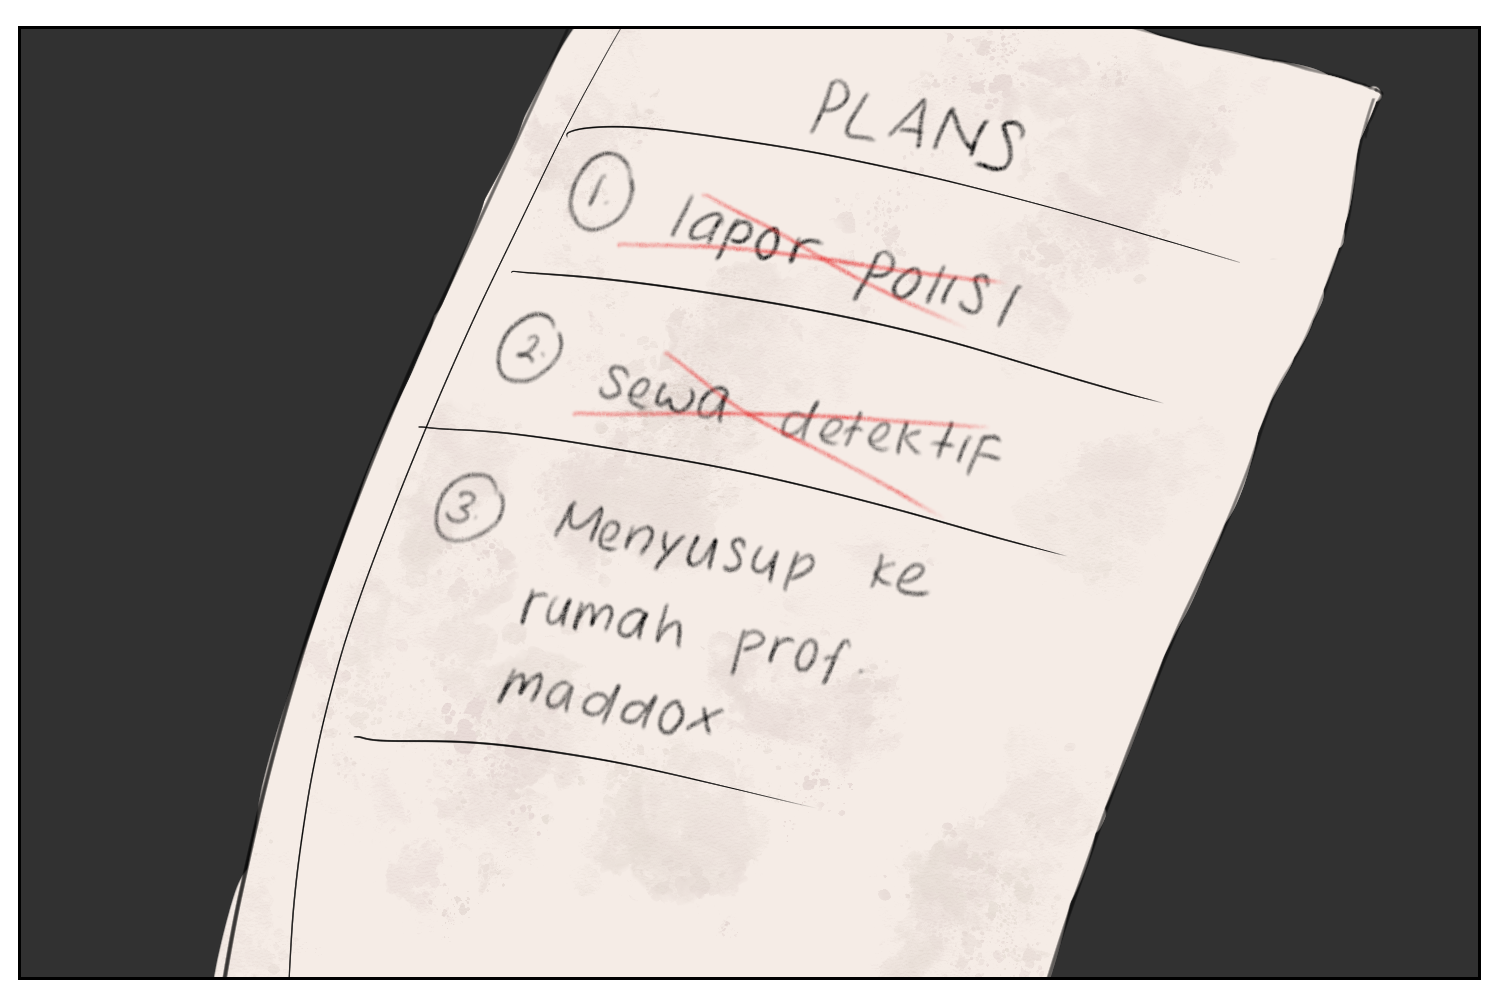 PLANS
1. lapor polisi
2. sewa detektif
3. Menyusup ke
rumah prof.
maddox